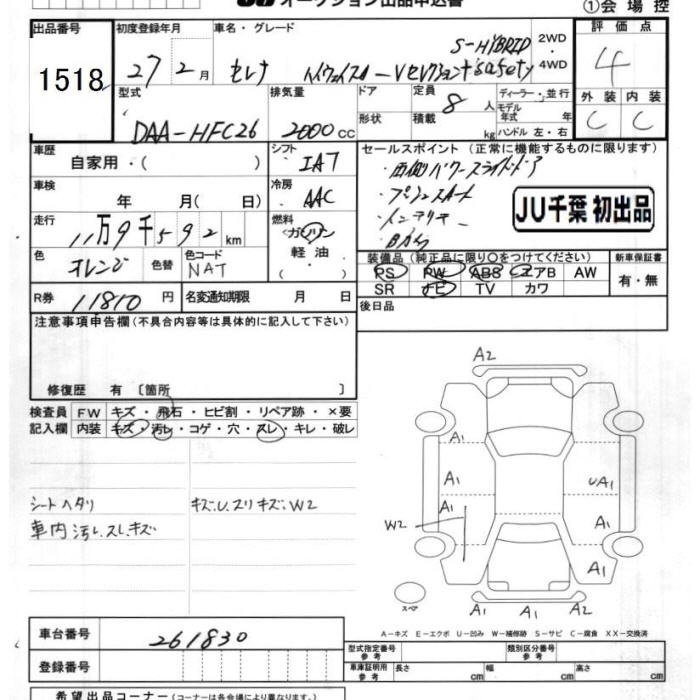 オークション出品申込書
①会場控
出品番号 初度登録年月 車名・グレード 評価点
1518 27 2月 セレナ ハイウェイスター Vセレクション+safety S-HYBRID 2WD・4WD 4
型式 排気量 ドア 定員 ディーラー・並行 外装 内装
DAA-HFC26 2000cc 形状 積載 8人 kg モデル年式 年 ハンドル 左・右 C C
車歴 シフト セールスポイント(正常に機能するものに限ります)
自家用・( ) IAT ・両側パワースライドドア
車検 冷房 ・プッシュスタート
年 月( 日) AAC ・インテリキー
走行 燃料 ・Bカメ
11万9千592km ガソリン 軽油
JU千葉 初出品
色 色替 色コード 装備品(純正品に限り〇をつけてください) 新車保証書
オレンジ NAT PS PW ABS エアB AW 有・無
SR ナビ TV カワ
R券 11810円 名変通知期限 月 日 後日品
注意事項申告欄(不具合内容等は具体的に記入して下さい)
修復歴 有〔箇所 〕
検査員 FW キズ・飛石・ヒビ割・リペア跡・×要
記入欄 内装 キズ・汚レ・コゲ・穴・スレ・キレ・破レ
シートヘタリ キズ.U.スリキズ.W2
車内汚レ.スレ.キズ
A2
A1
A1 UA1
A1 A1
W2
A1 A1
A1 A1
スペア
A-キズ E-エクボ U-凹み W-補修跡 S-サビ C-腐食 XX-交換済
車台番号 261830
型式指定番号 参考 類別区分番号 参考
登録番号 車庫証明用 参考 長さ cm 幅 cm 高さ cm
希望出品コーナー(コーナーは各会場により異なります。)